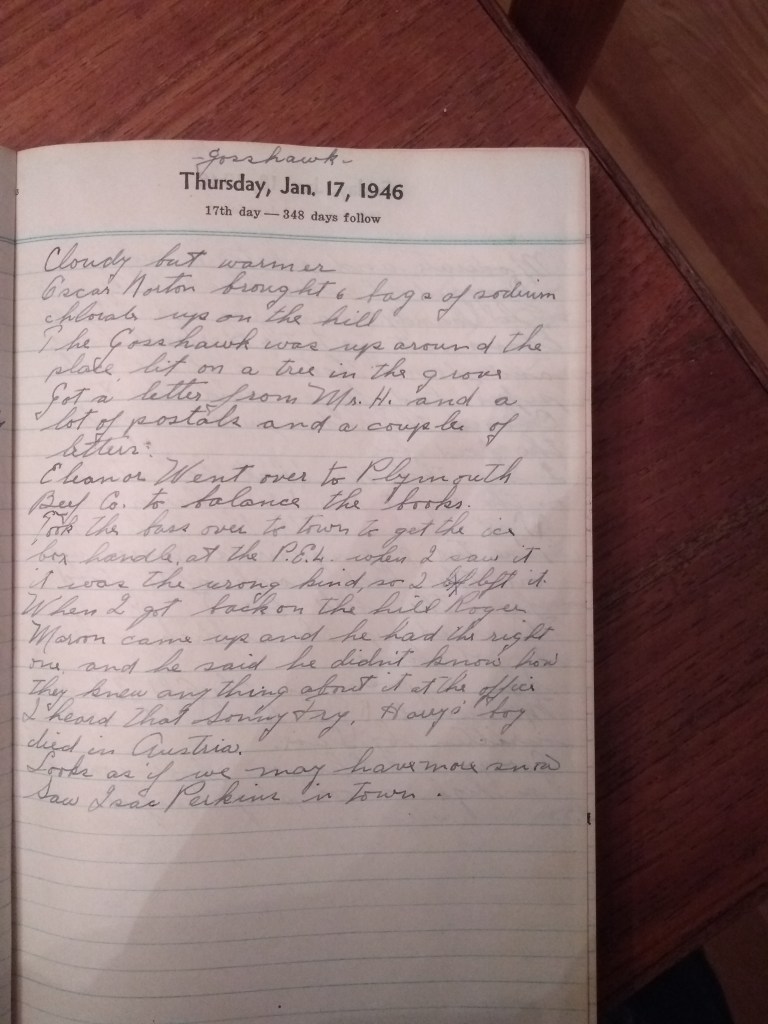 -Gosshawk-
Thursday, Jan. 17, 1946
17th day — 348 days follow
Cloudy but warmer
Oscar Norton brought 6 bags of sodium
chlorate up on the hill
The Gosshawk was up around the
place lit on a tree in the grove
Got a letter from Mr. H. and a
lot of postals and a couple of
letters.
Eleanor Went over to Plymouth
Beef Co. to balance the books.
Took the bass over to town to get the ice
box handle, at the P.E.L. when I saw it
it was the wrong kind, so I left it.
When I got back on the hill Roger
came up and he had the right
one and he said he didn't know how
they knew anything about it at the office
I heard that Sonny Fry, Harry's boy
died in Austria.
Looks as if we may have more snow
Saw Isac Perkins in town.